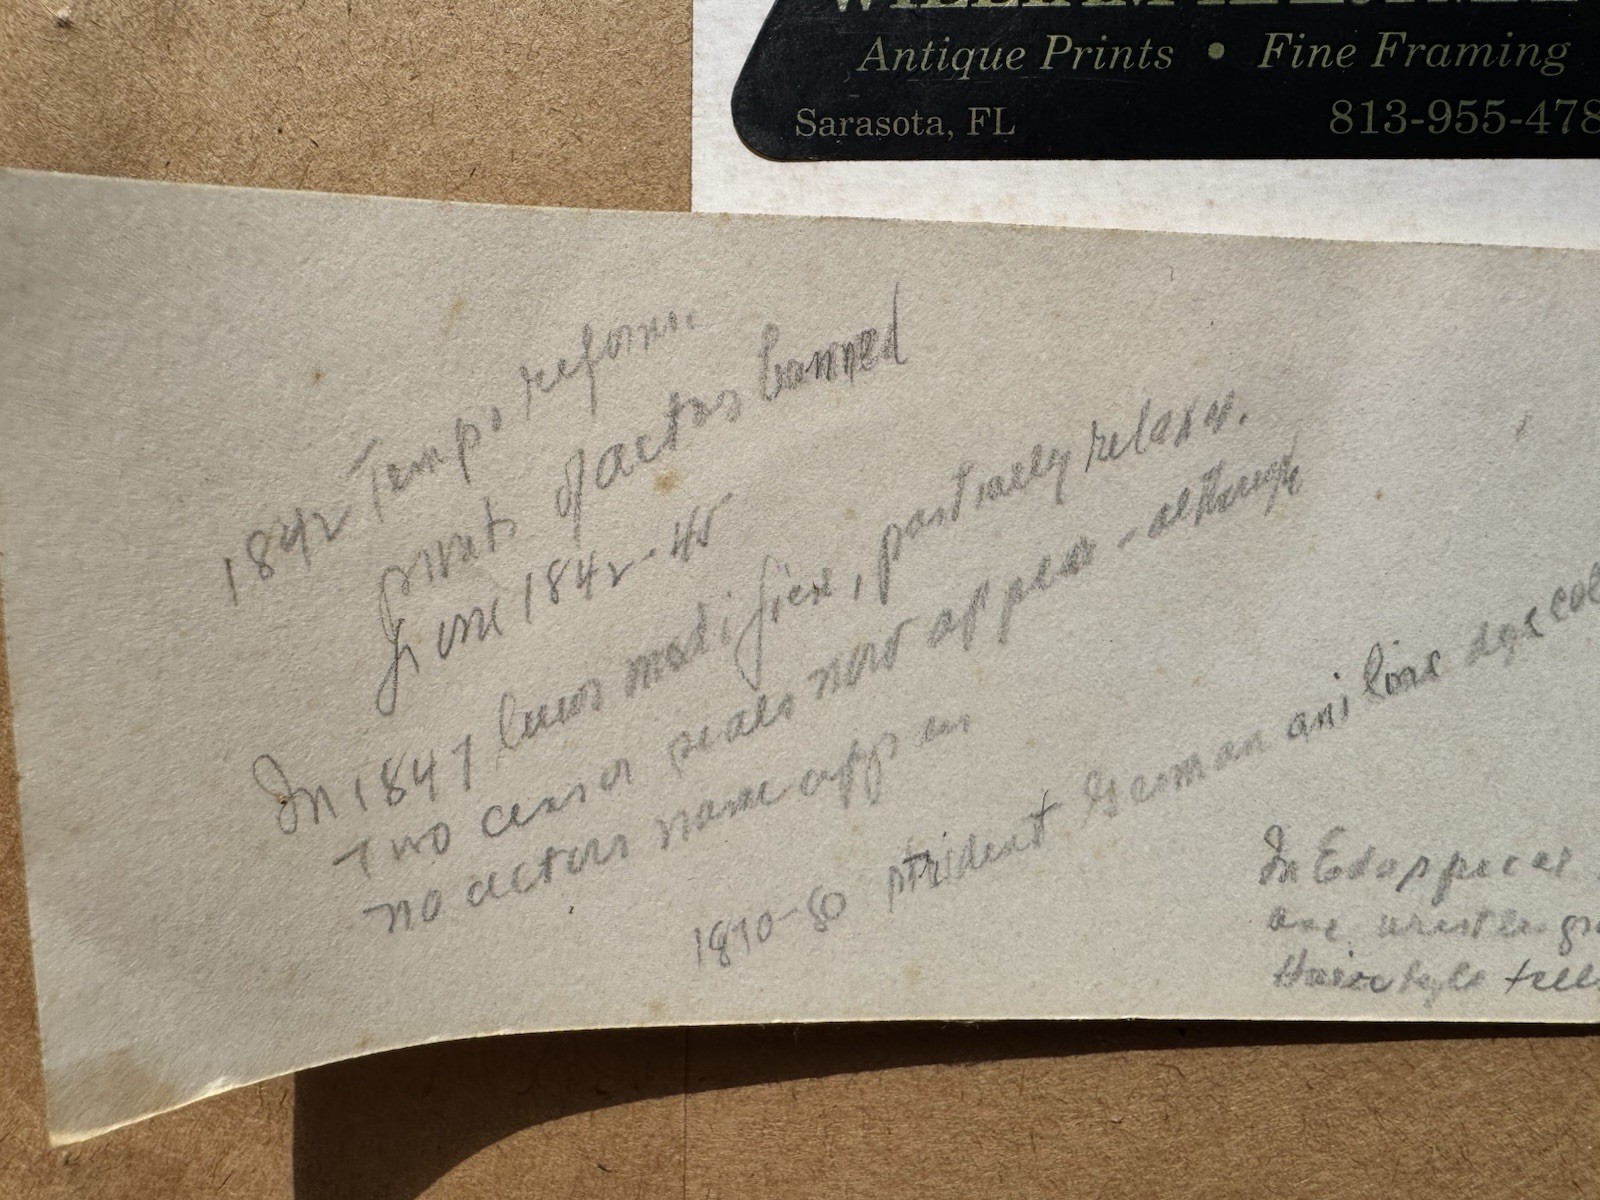 Antique Prints • Fine Framing
Sarasota, FL 813-955-478
1842 Tempo reform.
prints of actors banned
June 1842-45
In 1847 laws modified, partially relaxed.
Two censor seals now appear - although
no actors name appears
1870-80 strident German aniline dyes col
In Edo
are wrestler
Hairstyle tells